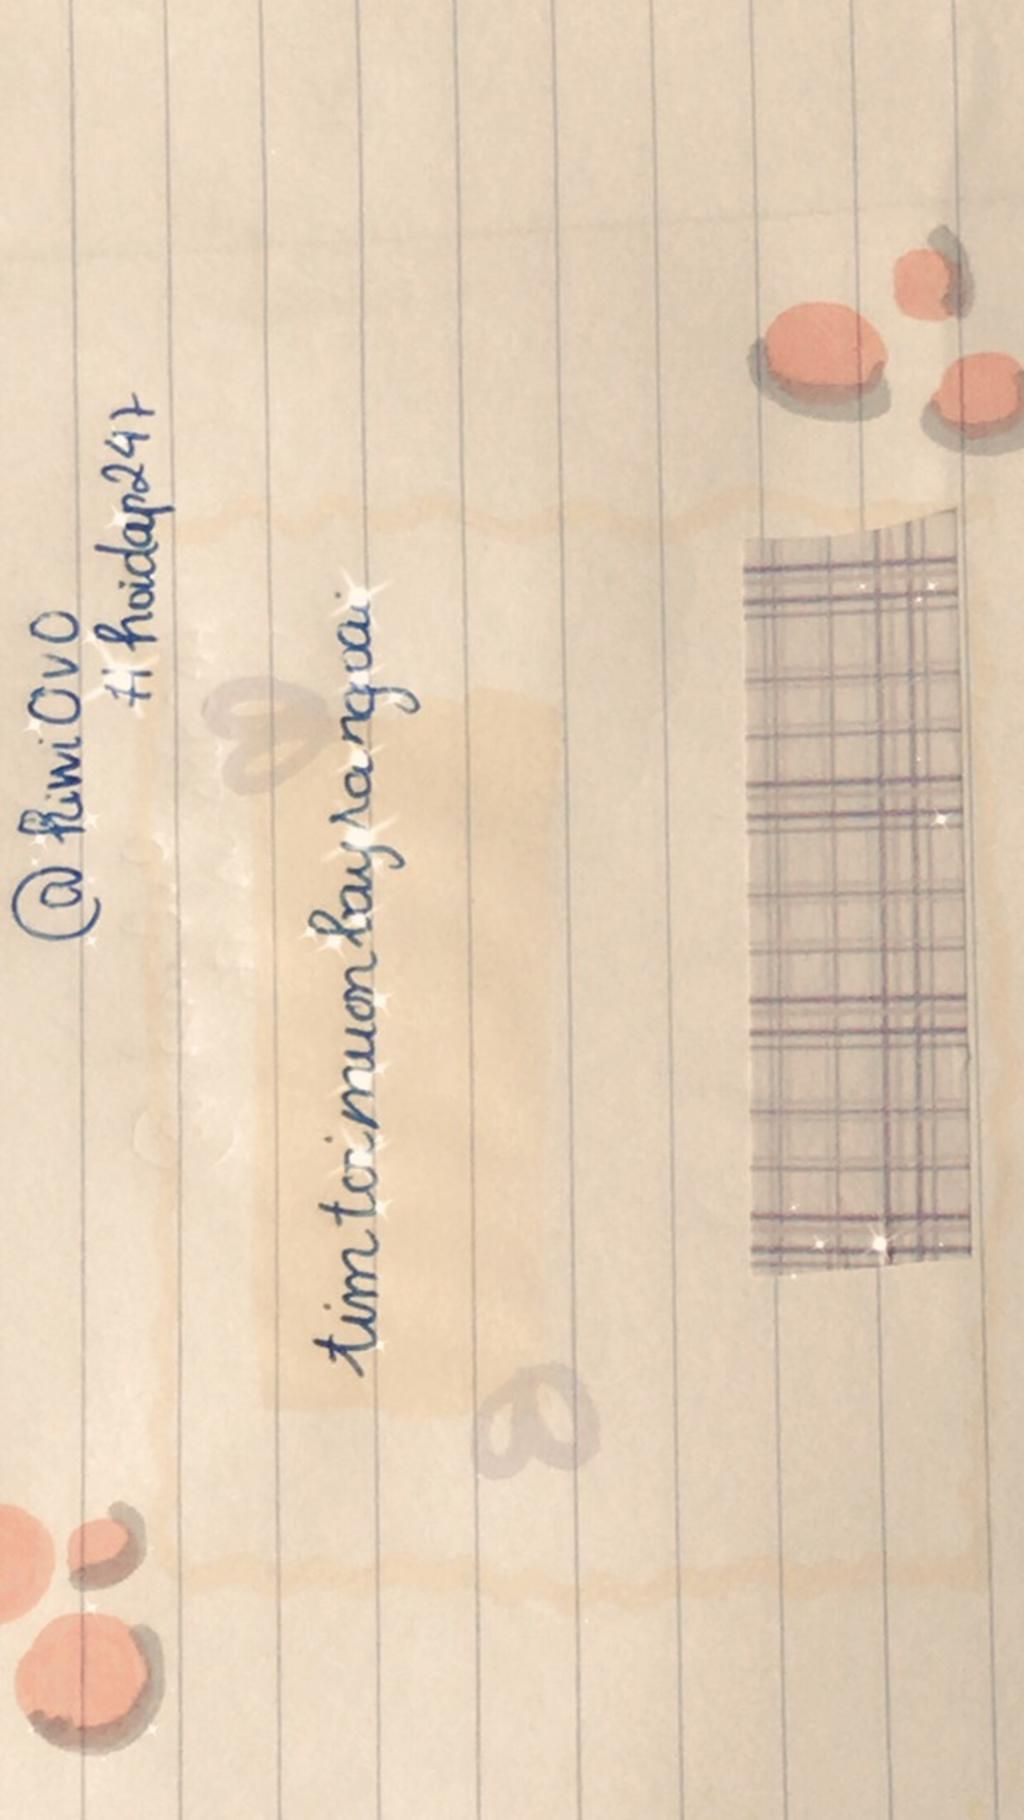 @kiwi0v0
#hoidap247
tim toi muon bay ra ngoai